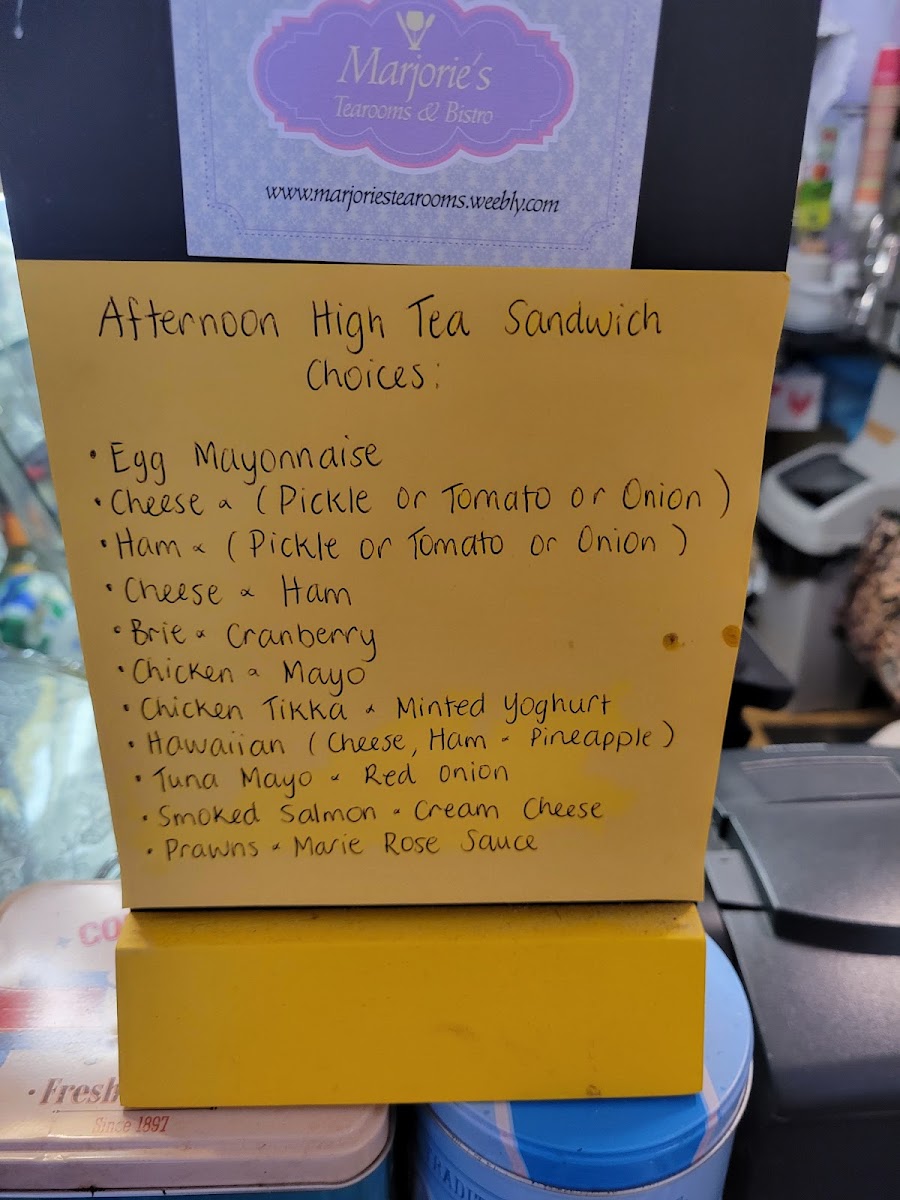 Marjorie's
Tearooms & Bistro
www.marjoriestearooms.weebly.com
Afternoon High Tea Sandwich
Choices:
• Egg Mayonnaise
• Cheese & (Pickle or Tomato or Onion)
• Ham & (Pickle or Tomato or Onion)
• Cheese & Ham
• Brie & Cranberry
• Chicken & Mayo
• Chicken Tikka & Minted Yoghurt
• Hawaiian (Cheese, Ham & Pineapple)
• Tuna Mayo & Red Onion
• Smoked Salmon & Cream Cheese
• Prawns & Marie Rose Sauce
CO
• Fresh
Since 1897